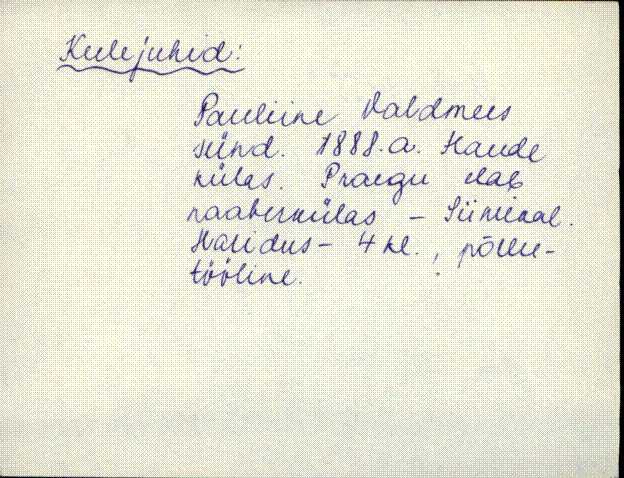 Keelejuhid:
Pauliine Valdmees
sünd. 1888.a. Haude
külas. Praegu elab
naaberkülas –
Haridus – 4 kl., põllu-
tööline.